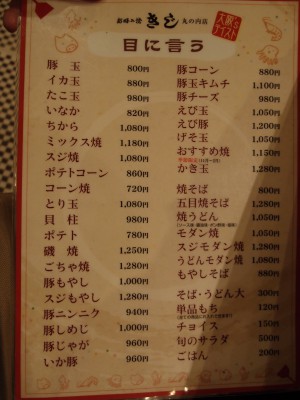 丸の内店
大阪の
テイスト
目に言う
豚玉 800円
イカ玉 880円
たこ玉 980円
いなか 820円
ちから 1,080円
ミックス焼 1,180円
スジ焼 1,080円
ポテトコーン 860円
コーン焼 720円
とり玉 1,080円
貝柱 980円
ポテト 780円
磯焼 1,250円
ごちゃ焼 1,280円
豚もやし 1,000円
スジもやし 1,280円
豚ニンニク 940円
豚しめじ 1,000円
豚じゃが 960円
いか豚 960円
豚コーン 880円
豚玉キムチ 1,100円
豚チーズ 980円
えび玉 1,050円
えび豚 1,200円
げそ玉 1,050円
おすすめ焼 1,150円
かき玉 1,280円
焼そば 800円
五目焼そば 1,280円
焼うどん 1,050円
モダン焼 1,050円
スジモダン焼 1,280円
うどんモダン焼 1,080円
もやしそば 880円
そば・うどん大 300円
単品もち 120円
チョイス 150円
旬のサラダ 500円
ごはん 200円